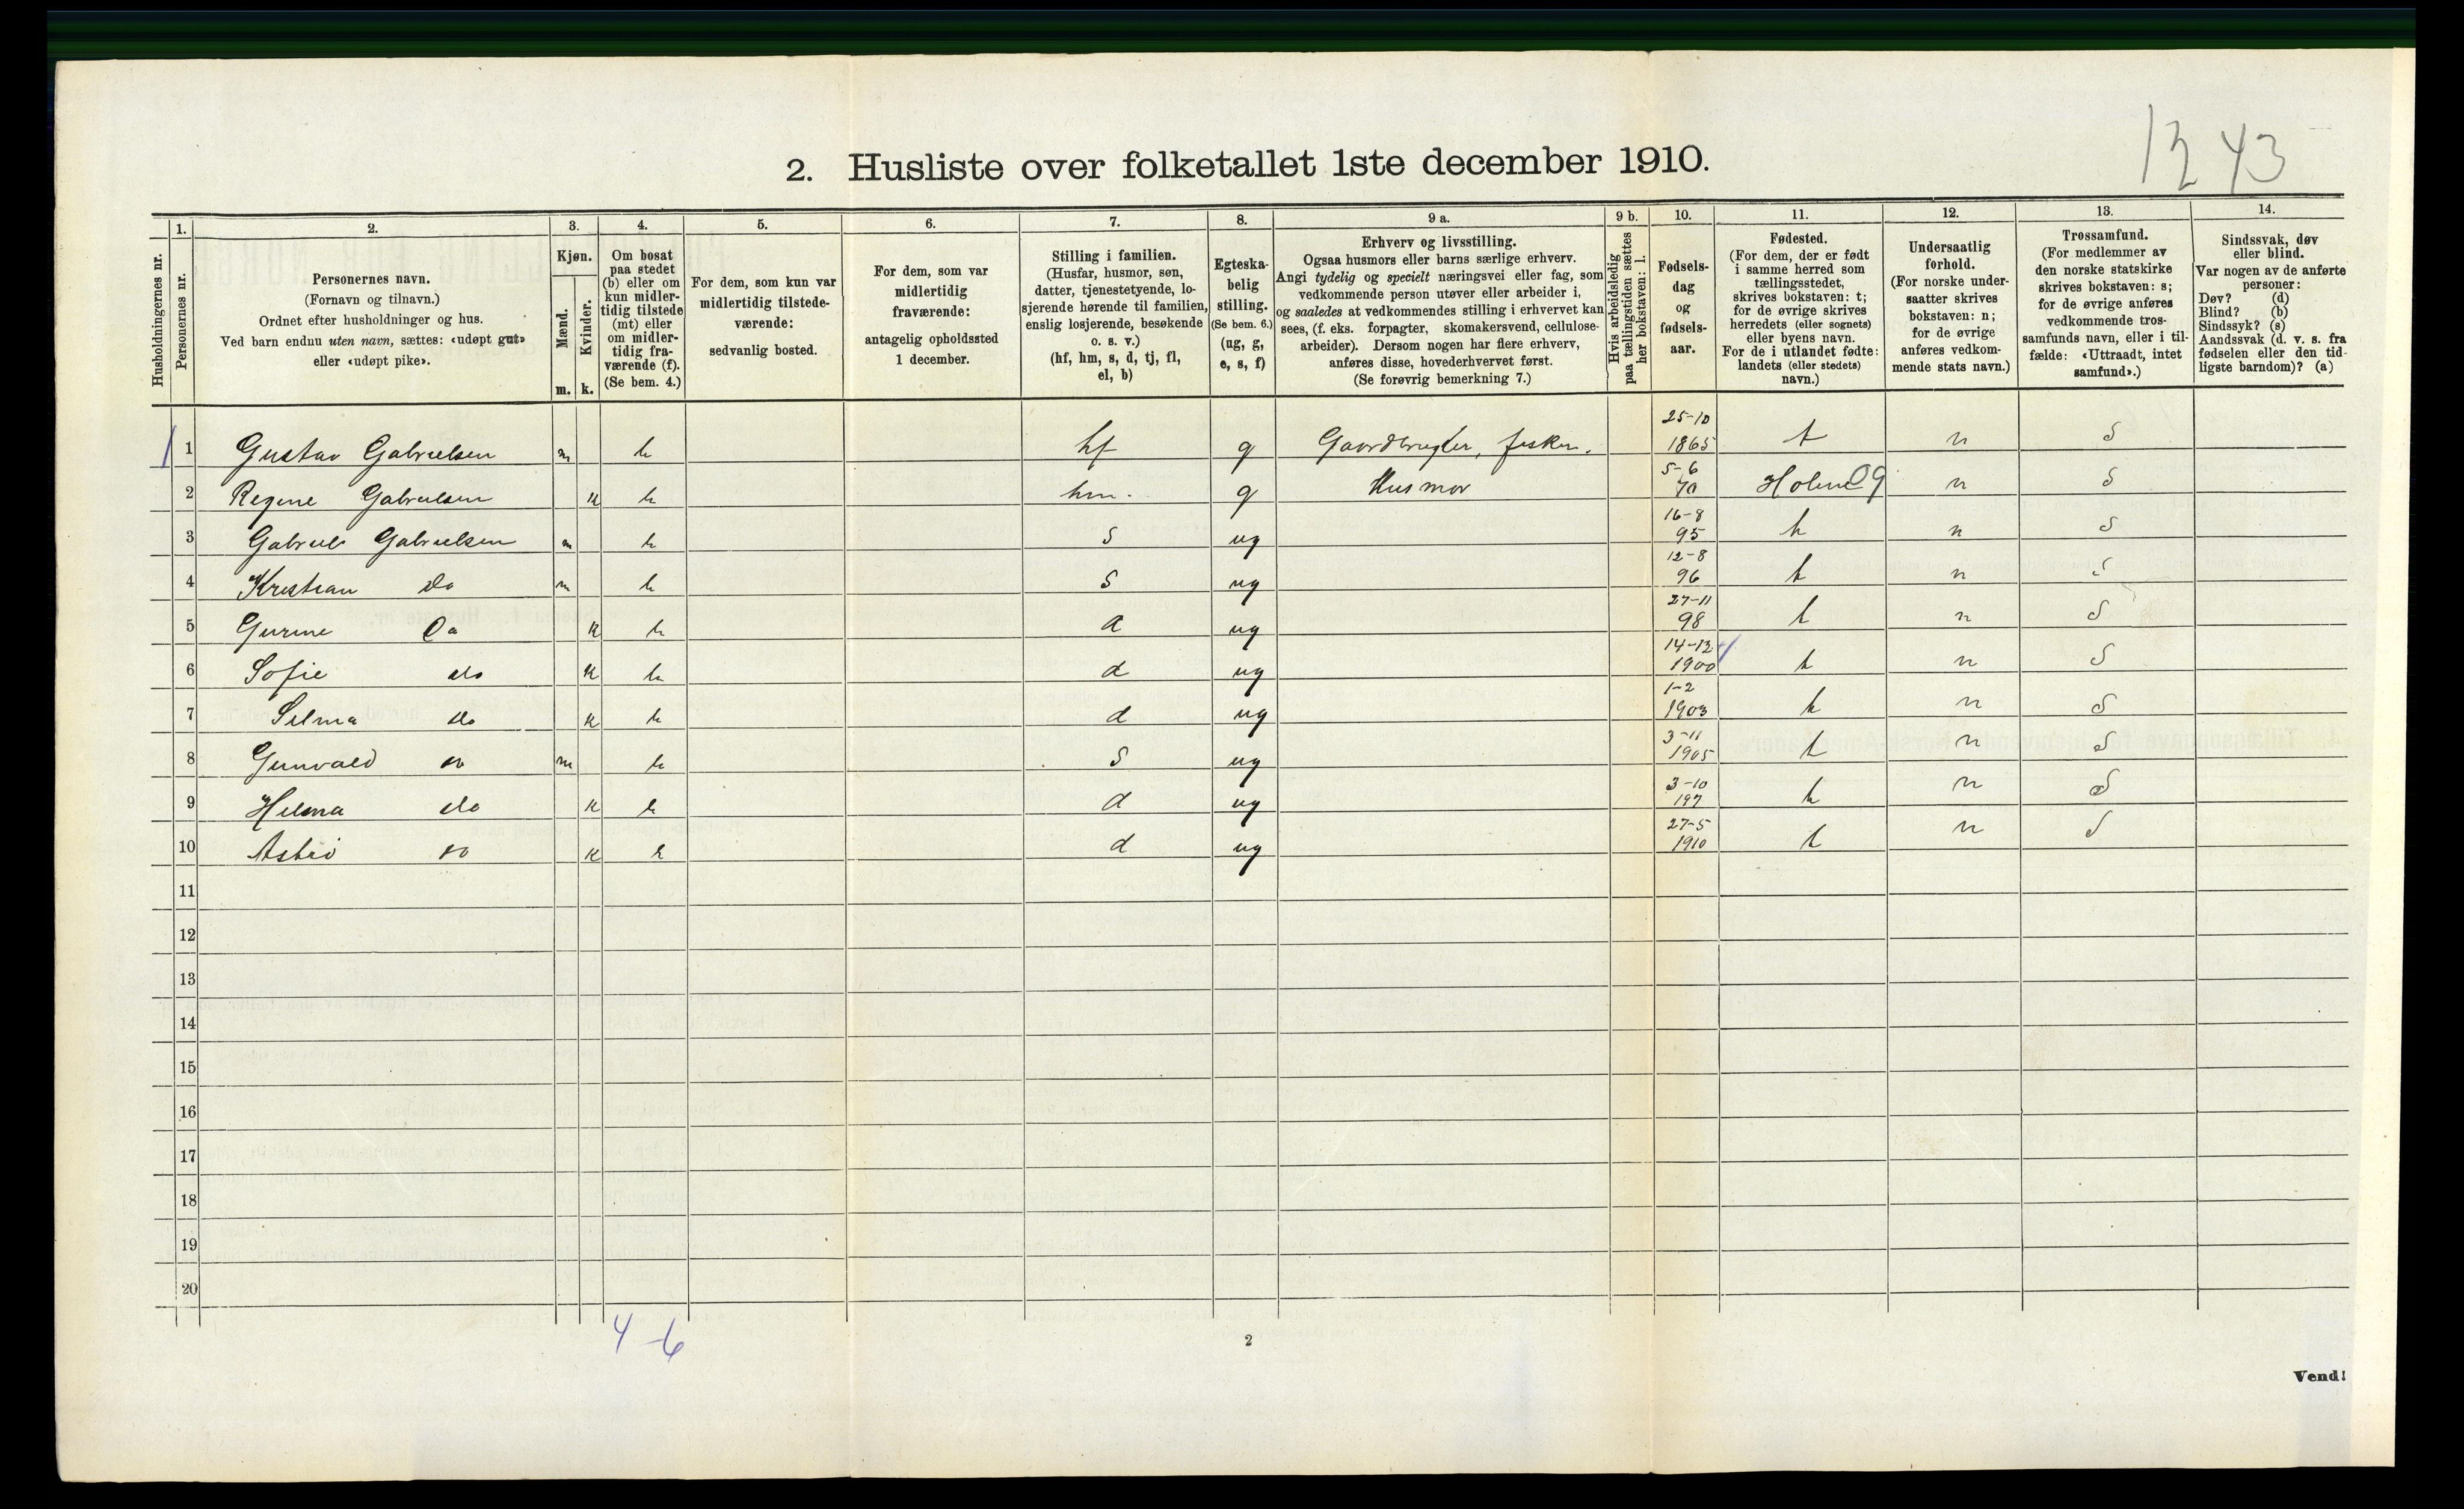 12 43
2. Husliste over folketallet 1ste december 1910.
Husholdningernes nr.
1.
Personernes nr.
2.
Personernes navn.
(Fornavn og tilnavn.)
Ordnet efter husholdninger og hus.
Ved barn endnu uten navn, sættes: «udøpt gut»
eller «udøpt pike».
3.
Kjøn.
Mænd.
m.
Kvinder.
k.
4.
Om bosat
paa stedet
(b) eller om
kun midler-
tidig tilstede
(mt) eller
om midler-
tidig fra-
værende (f).
(Se bem. 4.)
5.
For dem, som kun var
midlertidig tilstede-
værende:
sedvanlig bosted.
6.
For dem, som var
midlertidig
fraværende:
antagelig opholdssted
1 december.
7.
Stilling i familien.
(Husfar, husmor, søn,
datter, tjenestetyende, lo-
sjerende hørende til familien,
enslig losjerende, besøkende
o. s. v.)
(hf, hm, s, d, tj, fl,
el, b)
8.
Egteska-
belig
stilling.
(Se bem. 6.)
(ug, g,
e, s, f)
9 a.
Erhverv og livsstilling.
Ogsaa husmors eller barns særlige erhverv.
Angi tydelig og specielt næringsvei eller fag, som
vedkommende person utøver eller arbeider i,
og saaledes at vedkommendes stilling i erhvervet kan
sees, (f. eks. forpagter, skomakersvend, cellulose-
arbeider). Dersom nogen har flere erhverv,
anføres disse, hovederhvervet først.
(Se forøvrig bemerkning 7.)
9 b.
Hvis arbeidsledig
paa tællingstiden sættes
her bokstaven: l.
10.
Fødsels-
dag
og
fødsels-
aar.
11.
Fødested.
(For dem, der er født
i samme herred som
tællingsstedet,
skrives bokstaven: t;
for de øvrige skrives
herredets (eller sognets)
eller byens navn.
For de i utlandet fødte:
landets (eller stedets)
navn.)
12.
Undersaatlig
forhold.
(For norske under-
saatter skrives
bokstaven: n;
for de øvrige
anføres vedkom-
mende stats navn.)
13.
Trossamfund.
(For medlemmer av
den norske statskirke
skrives bokstaven: s;
for de øvrige anføres
vedkommende tros-
samfunds navn, eller i til-
fælde: «Uttraadt, intet
samfund».)
14.
Sindssvak, døv
eller blind.
Var nogen av de anførte
personer:
Døv? (d)
Blind? (b)
Sindssyk? (s)
Aandssvak (d. v. s. fra
fødselen eller den tid-
ligste barndom)? (a)
1 1 Gustav Gabrielsen m b hf g Gaardbruger, fisker. 25-10 1865 t n S
2 Regine Gabrielsen k b hm. g Husmor 5-6 70 Holme 09 n S
3 Gabriel Gabrielsen m b S ug 16-8 95 t n S
4 Kristian do m b S ug 12-8 96 t n S
5 Gurine Do k b d ug 27-11 98 t n S
6 Sofie do k b d ug 14-12 1900 t n S
7 Selma do k b d ug 1-2 1903 t n S
8 Gunvald do m b S ug 3-11 1905 t n S
9 Helma do k b d ug 3-10 197 t n S
10 do k b d ug 27-5 1910 t n S
11
12
13
14
15
16
17
18
19
20
4-6
2
Vend!